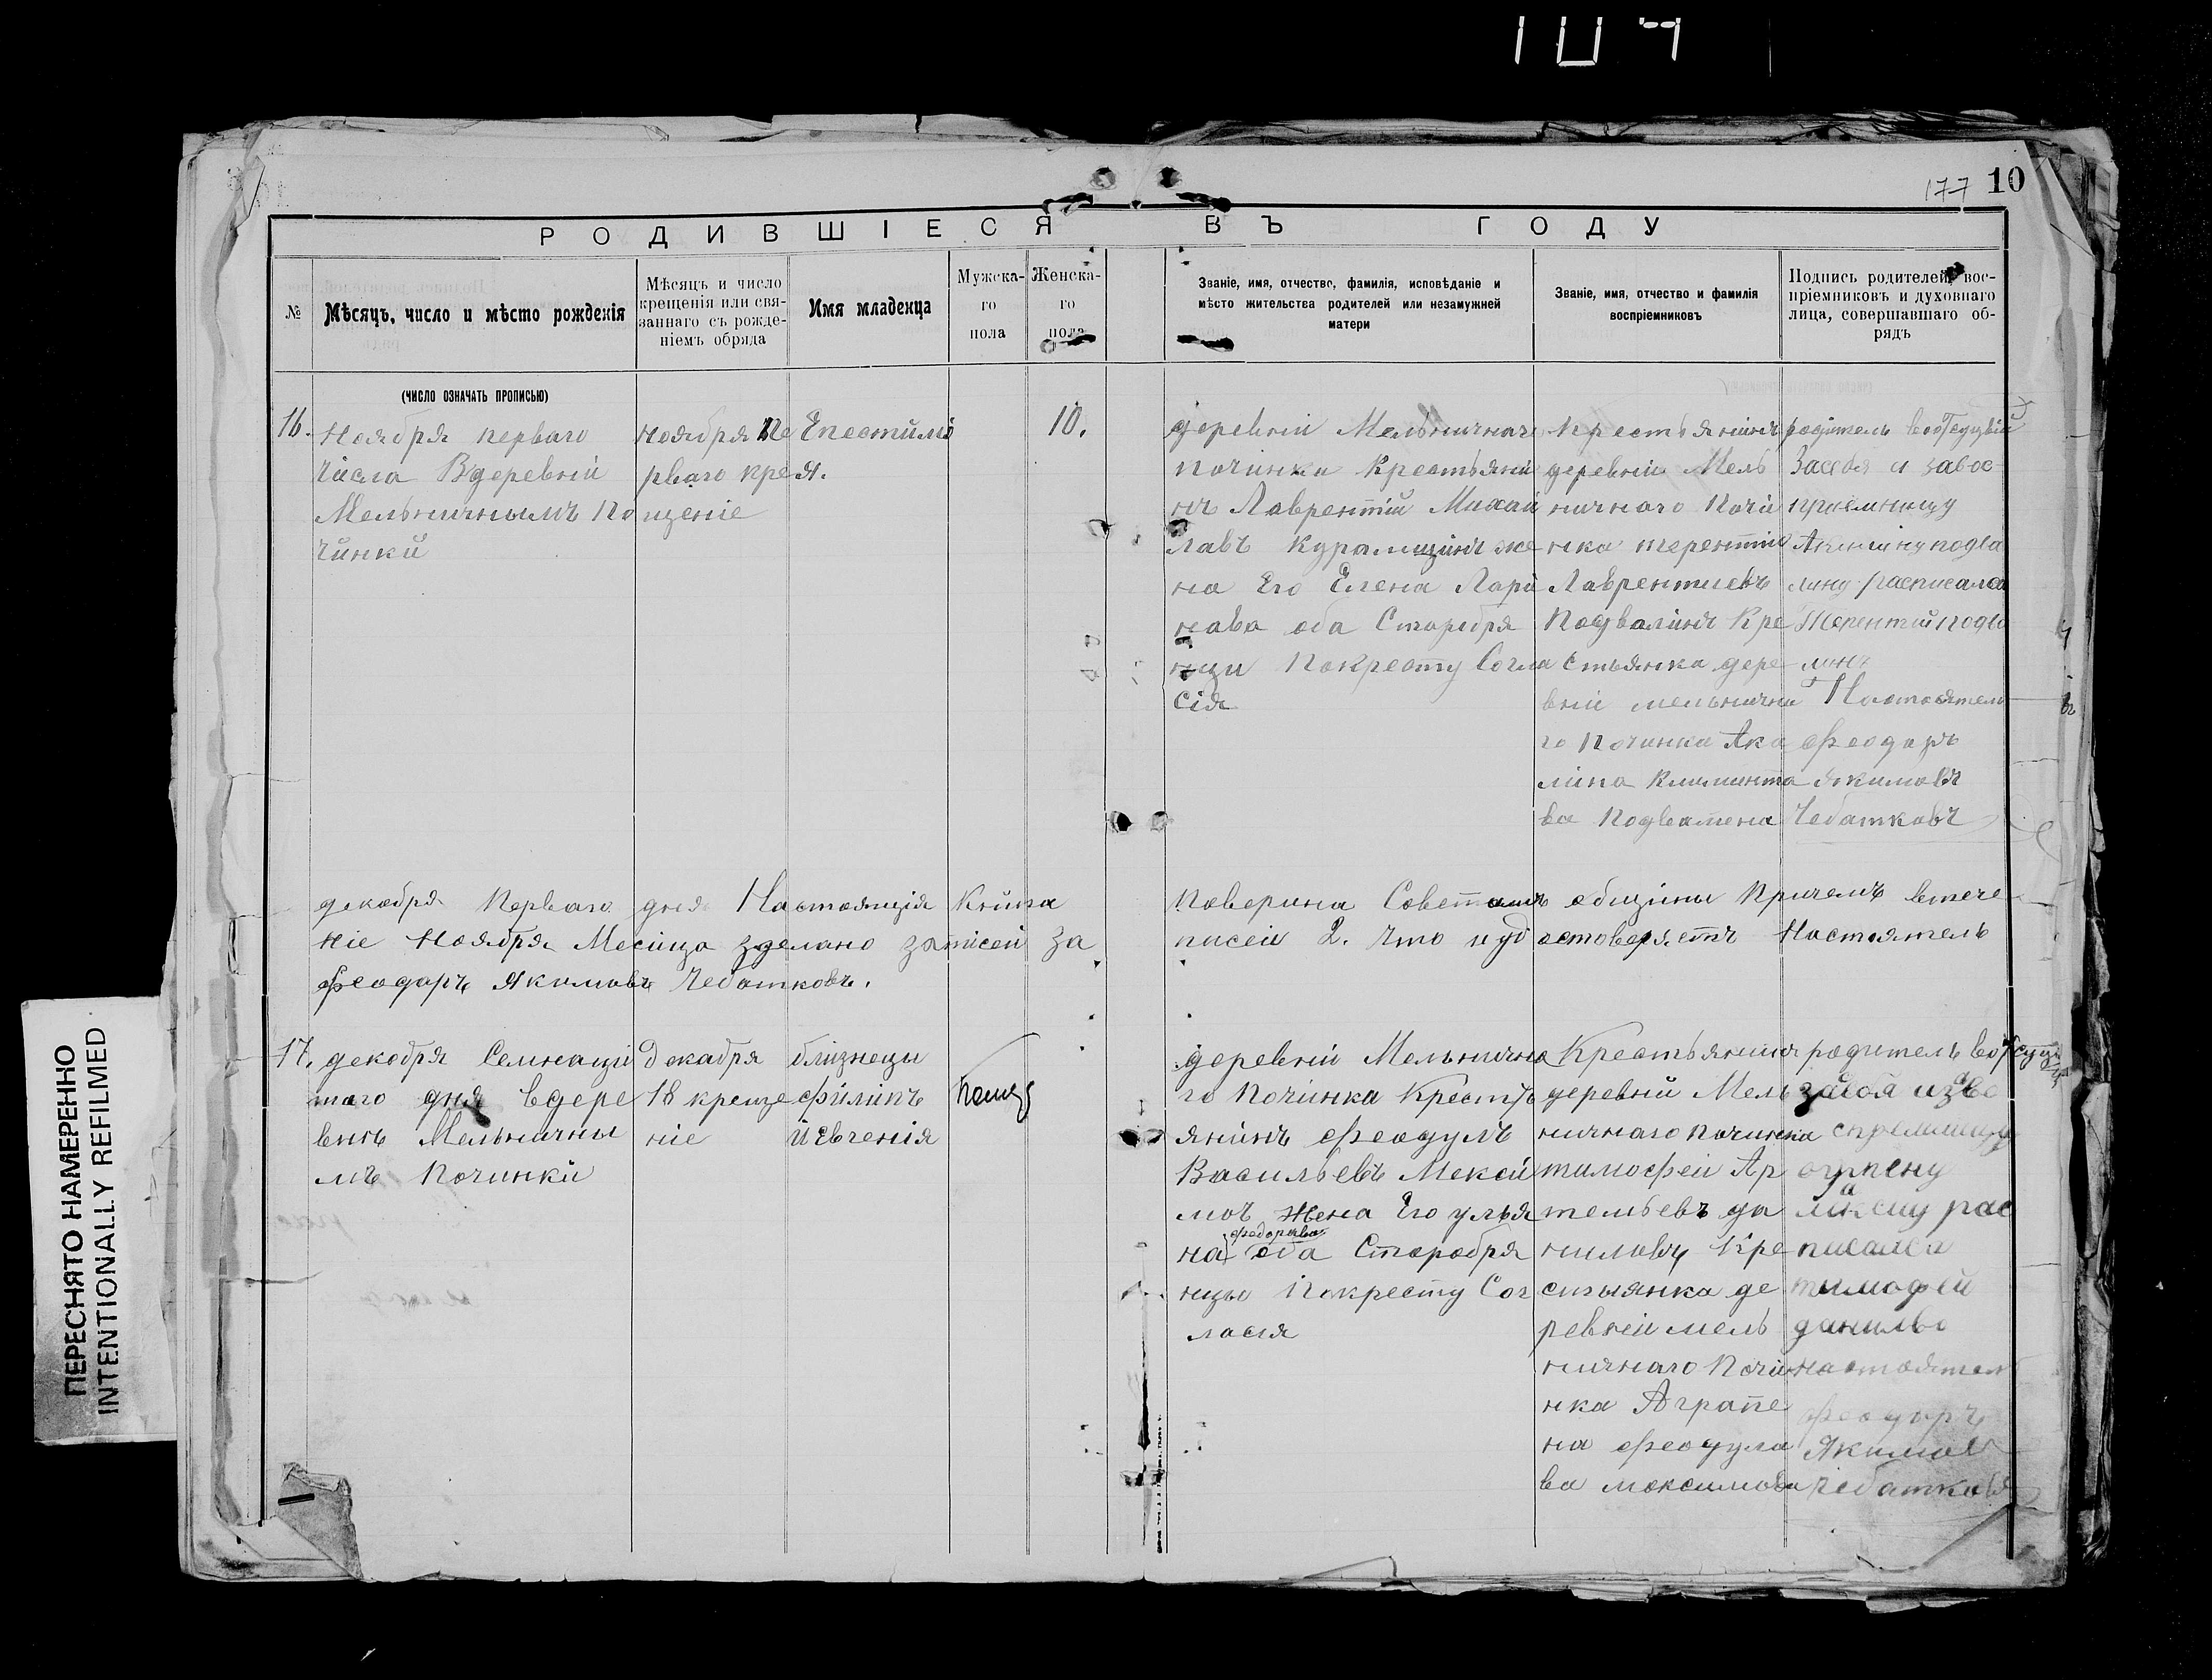 177 10
РОДИВШІЕСЯ ВЪ ГОДУ
№
Мѣсяцъ, число и мѣсто рожденія
Мѣсяцъ и число
крещенія или свя-
заннаго съ рожде-
ніемъ обряда
Имя младенца
Мужска-
го
пола
Женска-
го
пола
Званіе, имя, отчество, фамилія, исповѣданіе и
мѣсто жительства родителей или незамужней
матери
Званіе, имя, отчество и фамилія
воспріемниковъ
Подпись родителей, вос-
пріемниковъ и духовнаго
лица, совершавшаго об-
рядъ
(число означать прописью)
16.
Ноября перваго
числа Вдеревнiй
Мельничнымъ По
чинкй
ноября Пе
рваго кре
щеніе
Епестимi
я.
10.
деревнiй Мельничнаг
починка Крестьянй
нъ Лаврентiй Михай
лавъ
на Его Елена Лари
нава оба Старобря
нцы Покресту Согла
сiя
Крестьянинъ
деревнiй Мель
ничнаго Почи
нка терентiй
Лаврентиевъ
Подвалинъ Кре
стьянка дере
внiй мельнични
го Починка Аку
лина Климинта
ва
родитель
Засебя и завос
приемницу
Акулину подва
лину расписался
Терентий подва
линъ
Настоятель
феодаръ
Якимавъ
Чебатковъ
декабря Перваго дня Настоящiя Книга поверина Советамъ общины Причемъ втече
нiе Ноября Месяца зделано записей записей 2. Что и удостоверяетъ Настоятель
феодаръ Якимавъ Чебатковъ.
17.
декабря Семнаци
таго дня вдере
внъ Мельнични
мъ Починкй
декабря
18 креще
нiе
близнецы
филипъ
й Евгенiя
деревнiй Мельнична
го Починка Кресть
янинъ феодулъ
Васильевъ Мексй
мог Жена Его улья
федорава
на оба Старобря
нцы Покресту Сог
ласия
Крестьянинъ
деревнiй Мель
ничнаго починка
тимофей Ар
темьевъ да
ниловъ Кре
стьянка де
ревнiй мель
ничнаго Почи
нка Аграпе
на феодула
ва максимова
родитель
засебя изво
рас
писался
тимофей
данилво
настоятель
феодаръ
Якимав
Чебатковъ
ПЕРЕСНЯТО НАМЕРЕННО
INTENTIONALLY REFILMED